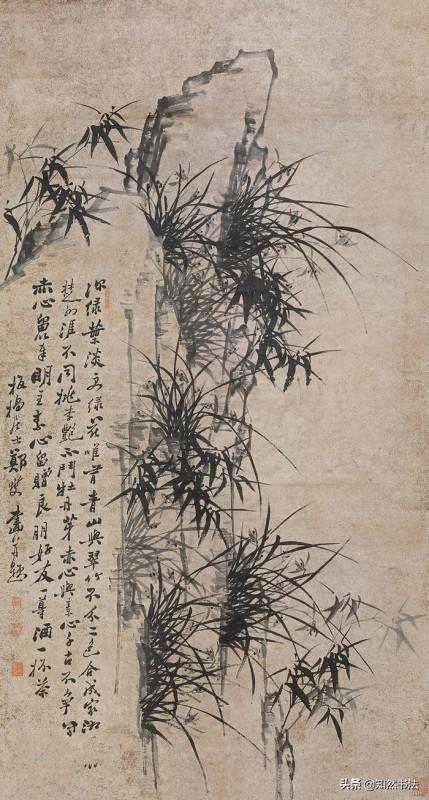 緑葉淡文緑花唯有青山與翠竹不分二色合成家湘
不同桃李艷不鬥牡丹芽赤心與素心千古不爭
赤心留奉明主素心留贈良朋好友一尊酒一杯茶
板橋居士鄭燮畫并題
头条 @知然书法